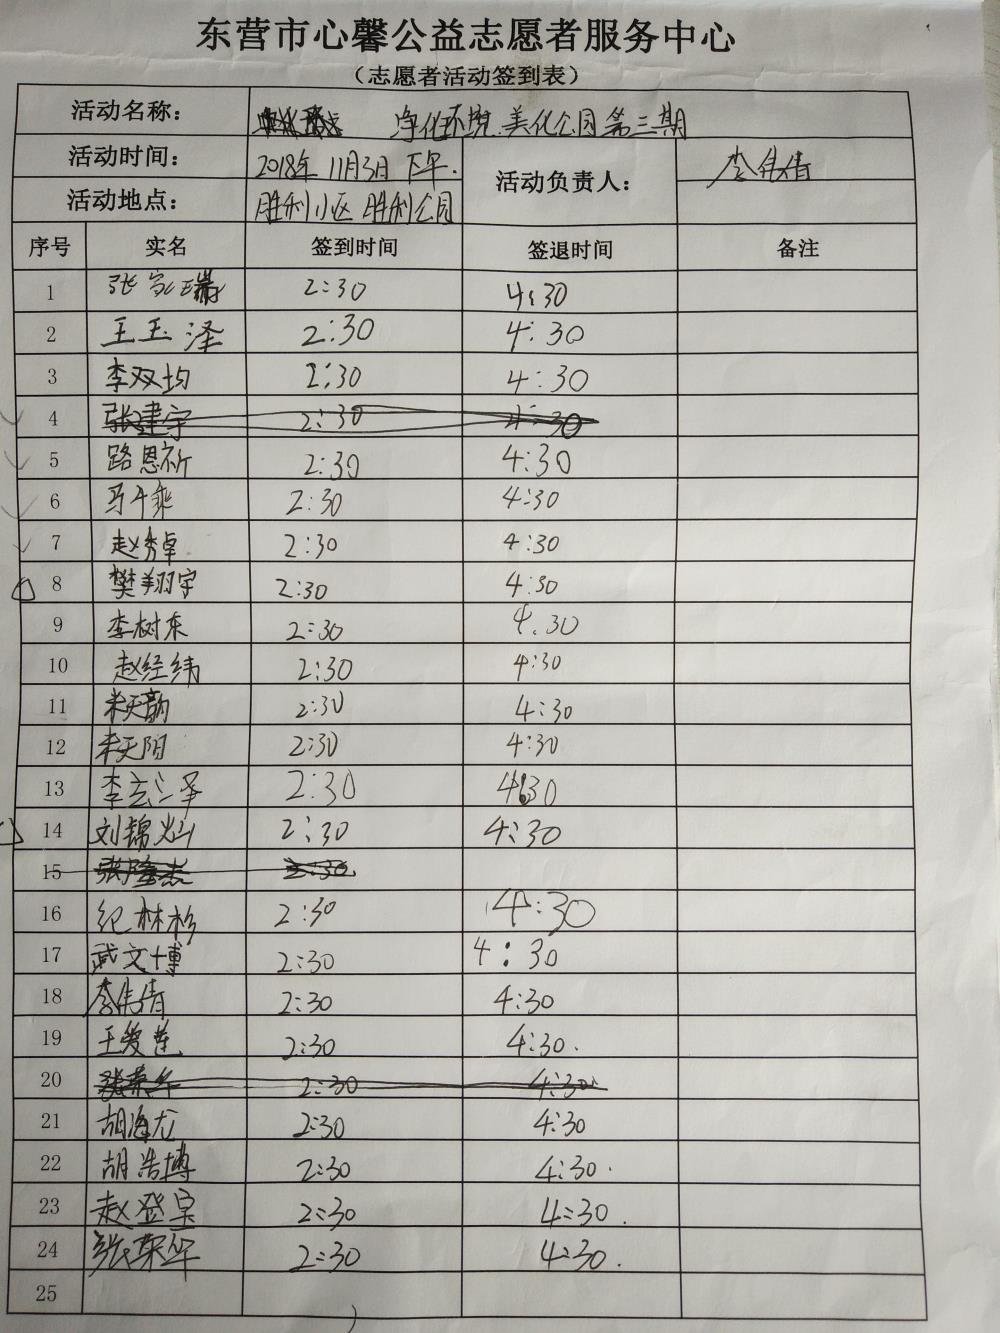 东营市心馨公益志愿者服务中心
（志愿者活动签到表）
活动名称： 净化环境.美化公园第三期
活动时间： 2018年11月3日下午. 活动负责人： 李伟倩
活动地点： 胜利小区 胜利公园
序号 实名 签到时间 签退时间 备注
1 张家瑞 2:30 4:30
2 王玉泽 2:30 4:30
3 李双均 2:30 4:30
4 张建宇 2:30 4:30
5 路恩祈 2:30 4:30
6 马千乘 2:30 4:30
7 赵秀卓 2:30 4:30
8 樊翔宇 2:30 4:30
9 李树东 2:30 4.30
10 赵经纬 2:30 4:30
11 2:30 4:30
12 2:30 4:30
13 李云泽 2:30 4:30
14 刘锦灿 2:30 4:30
15 2:30
16 纪林杉 2:30 4:30
17 武文博 2:30 4:30
18 李伟倩 2:30 4:30
19 王爱莲 2:30 4:30.
20 张荣华 2:30 4:30
21 胡海龙 2:30 4:30
22 胡浩博 2:30 4:30.
23 赵登宝 2:30 4:30.
24 张荣华 2:30 4:30.
25